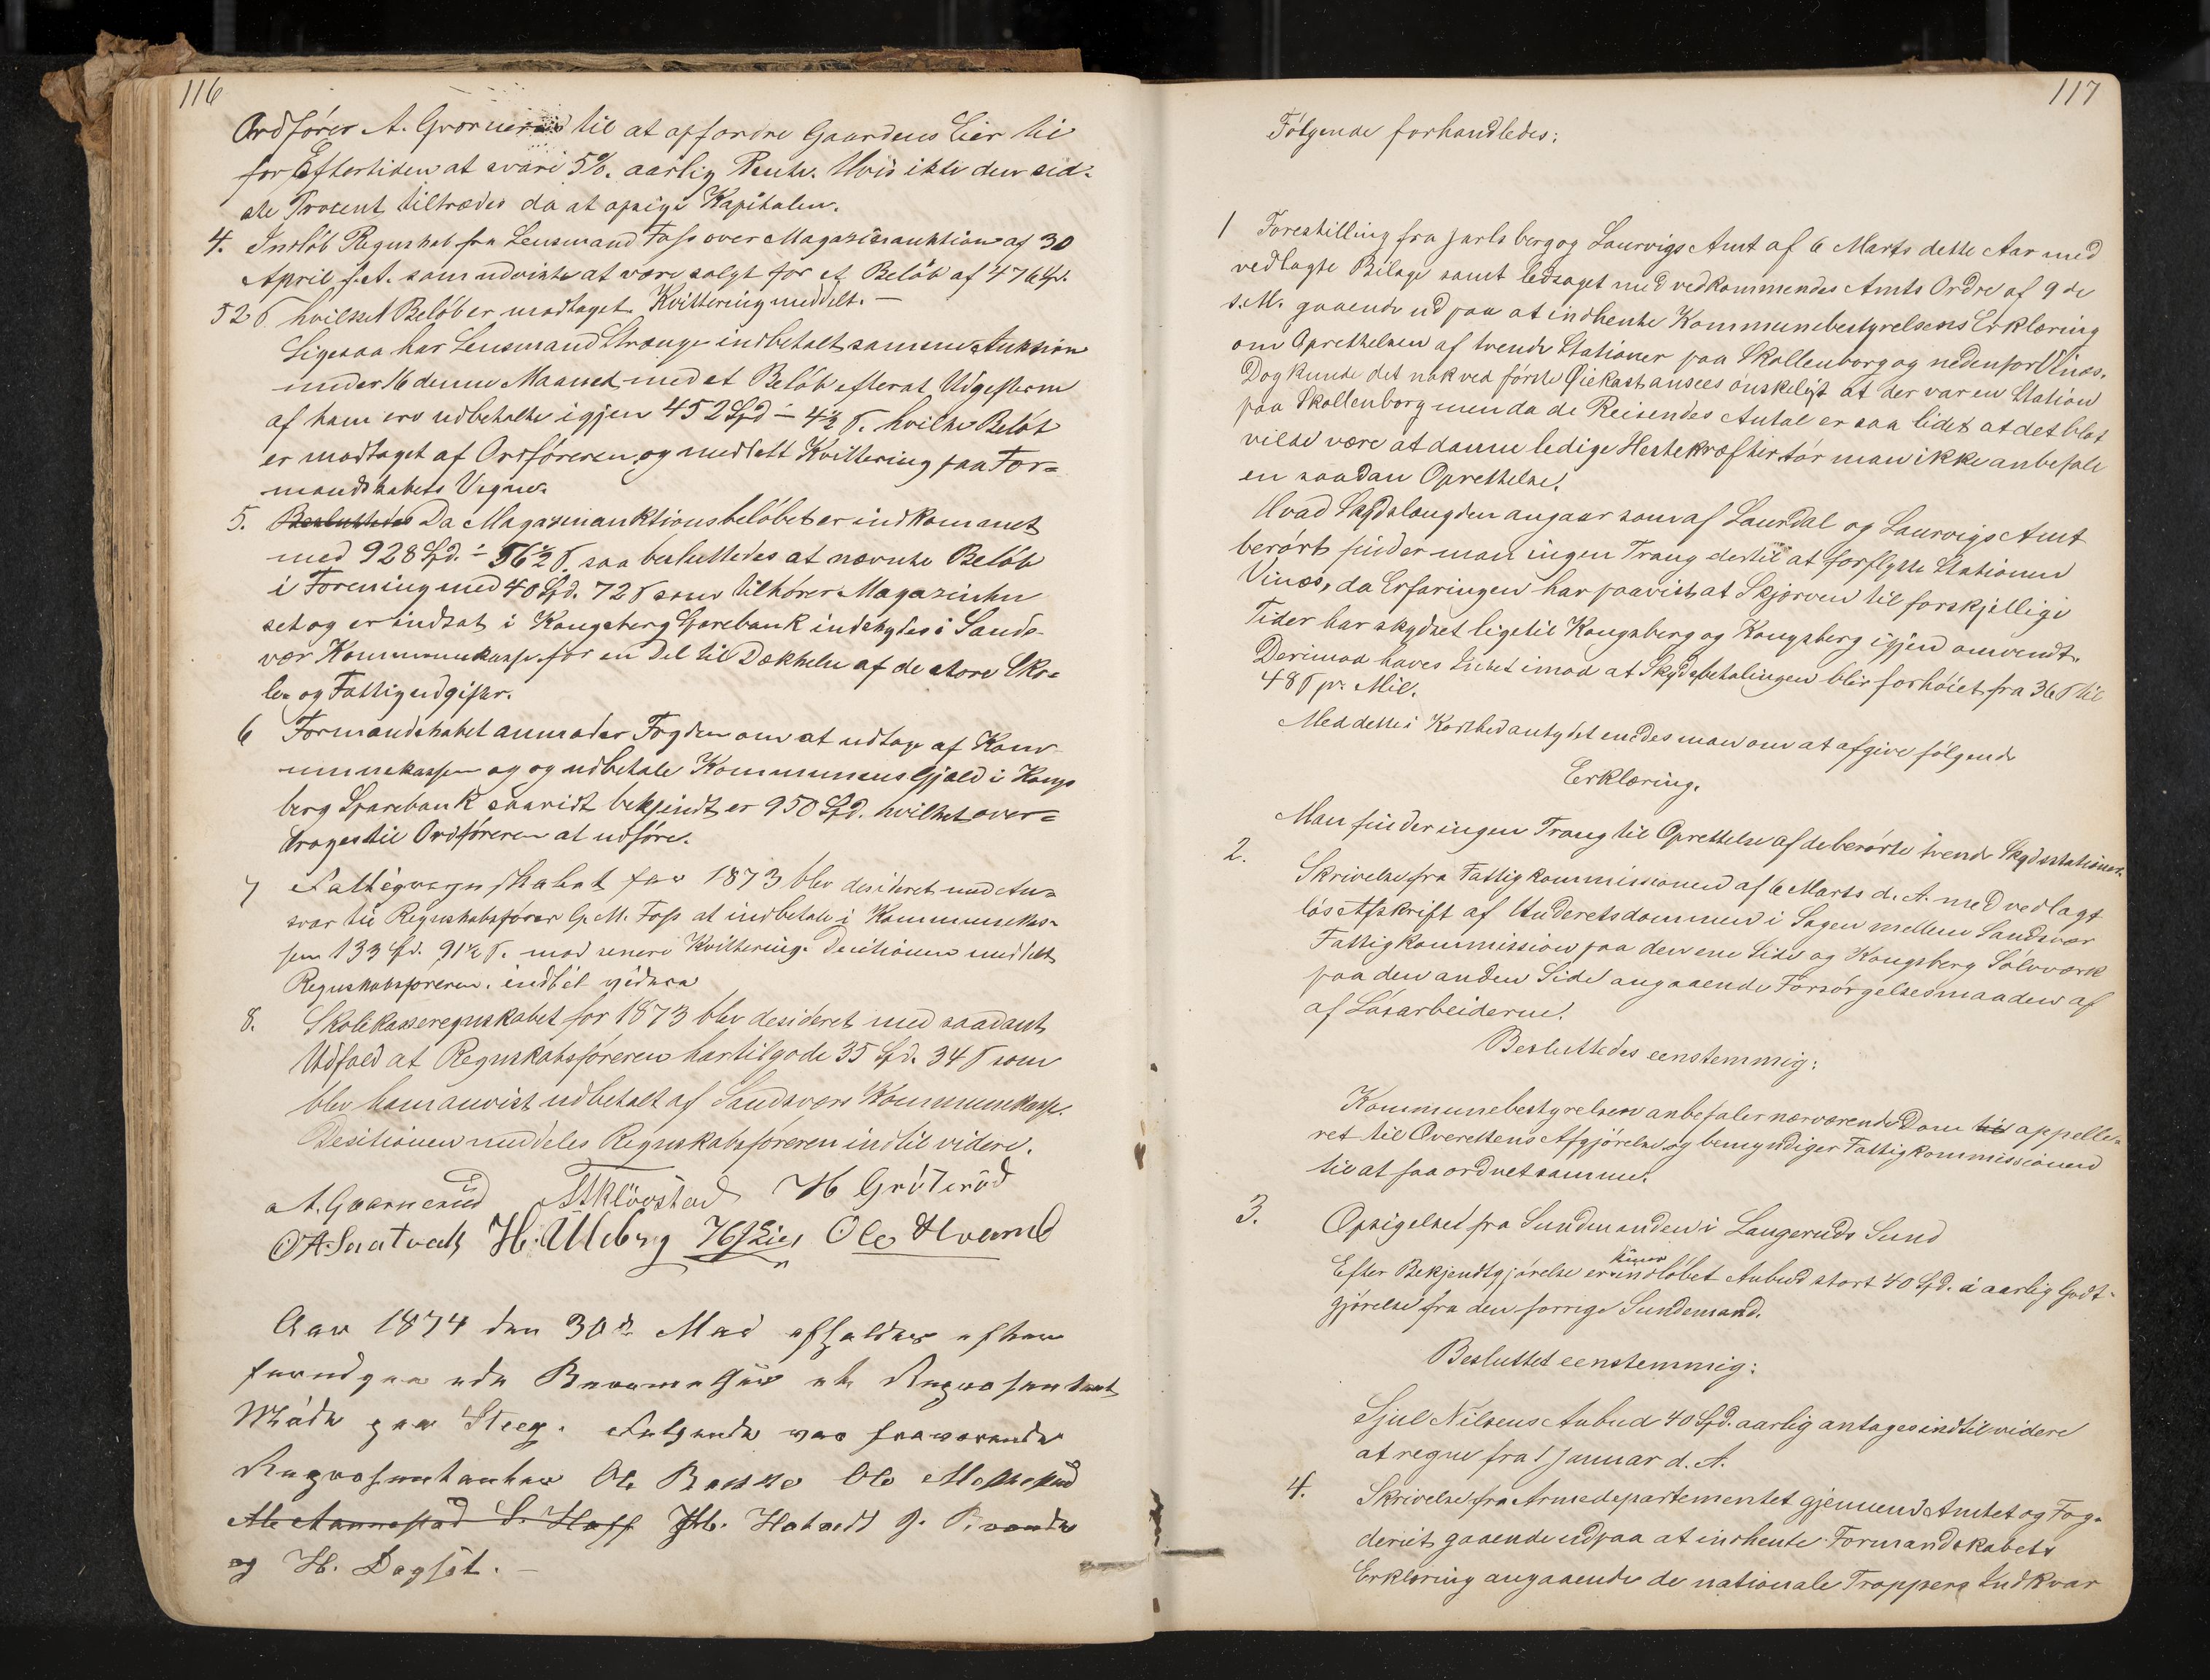 116
Ordfører A. Gvarnerud til at opfordre Gaardens Eier til
for Eftertiden at svare 5%. aarlig Rente. Hvis ikke den sid-
ste Procent tiltrædes da at opsige Kapitalen.
4. Indløb Regnskab fra Lensmand Foss over Magazinauktion af 30
April f.A. som udviste at være solgt for et Beløb af 476 Spd.
52 ß hvilket Beløb er modtaget. Kvittering meddelt. —
Ligesaa har Lensmand Strange indbetalt samme Auksion
under 16 denne Maaned med et Beløb efterat Udgifterne
af ham ere udbetalte igjen 452 Spd ÷ 4½ ß. hvilke Beløb
er modtaget af Ordføreren og meddelt Kvittering paa For=
mandskabets Vegne.
5. Besluttedes Da Magazinauktionsbeløbet er indkommet
med 928 Spd. ÷ 56½ ß. saa besluttedes at nævnte Beløb
i Forening med 40 Spd. 72 ß som tilhører Magazinhu
set og er indsat i Kongsberg Sparebank indskydes i Sands-
vær Kommunekasse for en Del til Dækkelse af de store Sko=
le- og Fattigudgifter.
6 Formandskabet anmoder Fogden om at udtage af Kom
munekassen og og udbetale Kommunens Gjæld i Kongs
berg Sparebank saavidt bekjendt er 950 Spd. hvilket over=
drages til Ordføreren at udføre.
7 Fattigregnskabet for 1873 blev desideret med An=
svar til Regnskabsfører G. M. Foss at indbetale i Kommunekas=
sen 133 Spd. 91½ ß. mod senere Kvittering. Decitionen meddelt
Regnskabsføreren indtil videre
8. Skolekasseregnskabet for 1873 blev desideret med saadant
Udfald at Regnskabsføreren har tilgode 35 Spd. 34 ß som
blev ham anvist udbetalt af Sandsværs Kommunekasse.
Desitionen meddeles Regnskabsføreren indtil videre.
A. Gvarnerud Kløvstad H Grøterød
O A. Saatvedt H. Ulleberg Ole Hvamb
Aar 1874 den 30te Mai afholdes efter
forudgaaende Berammelse et Repræsentant
Møde paa Steeg. Følgende var fraværende
Repræsentanter Ole Bakke Ole
og H. Dagslet. —
117
Følgende forhandledes:
1 Forestilling fra Jarlsberg og Laurvigs Amt af 6 Marts dette Aar med
vedlagte Bilage samt ledsaget med vedkommendes Amts Ordre af 9 de
s.M. gaaende ud paa at indhente Kommunebestyrelsens Erklæring
om Oprettelsen af tvende Stationer paa Skollenborg og nedenfor Vinæs.
Dog kunde det nok ved første Øiekast ansees ønskeligt at der var en Station
paa Skollenborg men da de Reisendes Antal er saa lidet at det blot
vilde være at danne ledige Hestekræfter tør man ikke anbefale
en saadan Oprettelse.
Hvad Skydslængden angaar som af Laurdal og Laurvigs Amt
berørt finder man ingen Trang dertil at forflytte Stationen
Vinæs, da Erfaringen har paavist at Skjørven til forskjellige
Tider har skydset lige til Kongsberg og Kongsberg igjen omvendt.
Derimod haves Intet imod at Skydsbetalingen blir forhøiet fra 36 ß til
48 ß pr. Mil.
Med dette i Korthed antydet enedes man om at afgive følgende
Erklæring.
Man finder ingen Trang til Oprettelse af de berørte tvende Skydsstationer.
2.
Skrivelse fra Fattigkommissionen af 6 Marts d. A. med vedlagt
løs Afskrift af Underetsdommen i Sagen mellem Sandsvær
Fattigkommission paa den ene Side og Kongsberg Sølvværk
paa den anden Side angaaende Forsørgelsesmaaden af
af Løsarbeiderne.
Besluttedes eenstemmig:
Kommunebestyrelsen anbefaler nærværende Dom til appelle=
ret til Overettens Afgjørelse og bemyndiger Fattigkommissionen
til at faa ordnet samme.
3. Opsigelse fra Sundmanden i Laugeruds Sund
Efter Bekjendtgjørelse er indløbet Anbud stort 40 Spd. i aarlig Godt-
gjørelse fra den forrige Sundemand.
Besluttet eenstemmig:
Gjul Nilsens Anbud 40 Spd. aarlig antages indtil videre
at regne fra 1 Januar d. A.
4. Skrivelse fra Armedepartementet gjennem Amtet og Fog-
deriet gaaende ud paa at inhente Formandskabets
Erklæring angaaende de nationale Troppers Indkvar